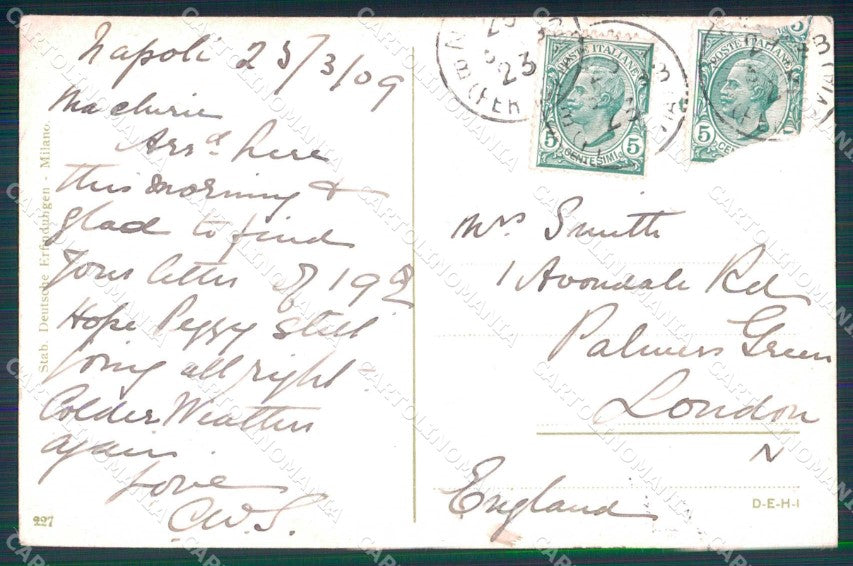 Napoli 25/3/09
Ma cherie
Arrd here
this morning &
glad to find
your letter of 19th
Hope Peggy still
going all right
Colder Weather
again
Love
C.W.S.
Stab. Deutsche Erfindungen - Milano.
227
POSTE ITALIANE
5 5
CENTESIMI
POSTE ITALIANE
5
CENTESIMI
23
Mrs Smith
1 Avondale Rd
Palmers Green
London
N
England
D-E-H-I
CARTOLINOMANIA